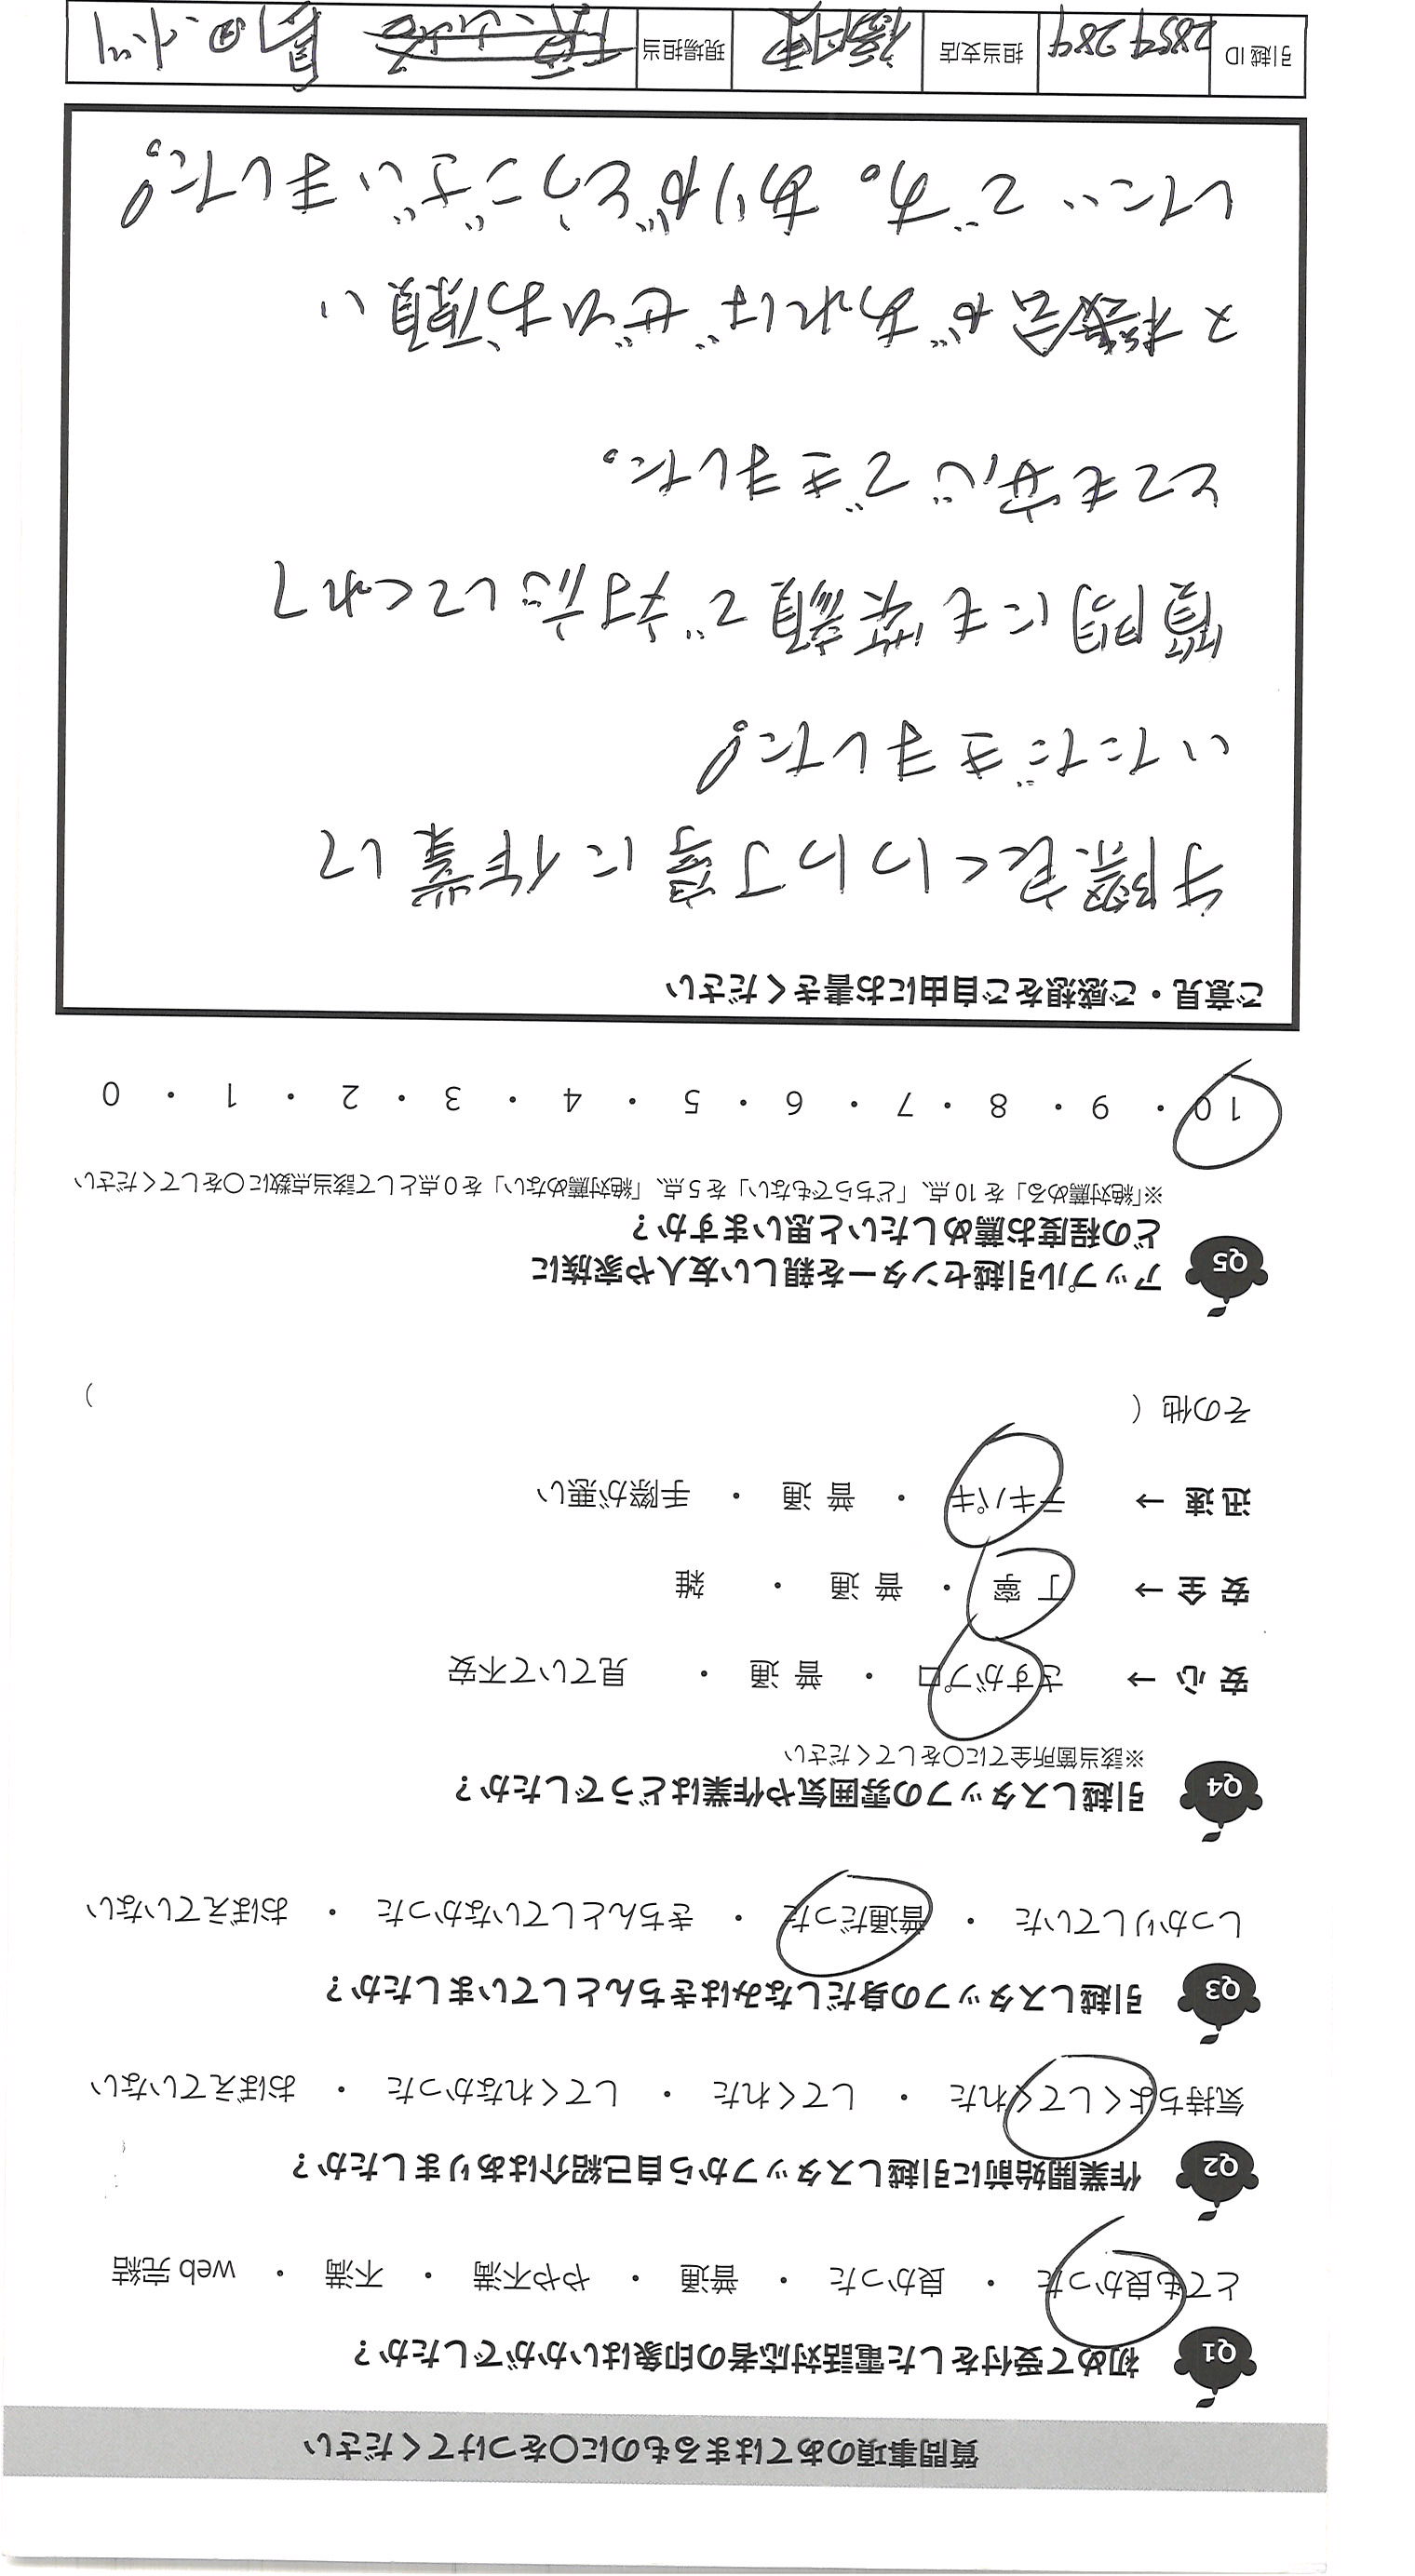 質問事項のあてはまるものに〇をつけてください
Q1 初めて受付をした電話対応者の印象はいかがでしたか？
とても良かった ・ 良かった ・ 普通 ・ やや不満 ・ 不満 ・ web 完結
Q2 作業開始前に引越しスタッフから自己紹介はありましたか？
気持ちよくしてくれた ・ してくれた ・ してくれなかった ・ おぼえていない
Q3 引越しスタッフの身だしなみはきちんとしていましたか？
しっかりしていた ・ 普通だった ・ きちんとしていなかった ・ おぼえていない
Q4 引越しスタッフの雰囲気や作業はどうでしたか？
※該当箇所全てに〇をしてください
安 心 → さすがプロ ・ 普 通 ・ 見ていて不安
安 全 → 丁 寧 ・ 普 通 ・ 雑
迅 速 → テキパキ ・ 普 通 ・ 手際が悪い
その他（ ）
Q5 アップル引越センターを親しい友人や家族に
どの程度お薦めしたいと思いますか？
※「絶対薦める」を 10 点、「どちらでもない」を 5 点、「絶対薦めない」を 0 点として該当点数に〇をしてください
10 ・ 9 ・ 8 ・ 7 ・ 6 ・ 5 ・ 4 ・ 3 ・ 2 ・ 1 ・ 0
ご意見・ご感想をご自由にお書きください
手際良くかつ丁寧に作業して
いただきました!
質問にも笑顔で対応してくれて
とても安心できました。
又機会があればぜひお願い
したいです。ありがとうございました!
引越 ID 2859289 担当支店 現場担当